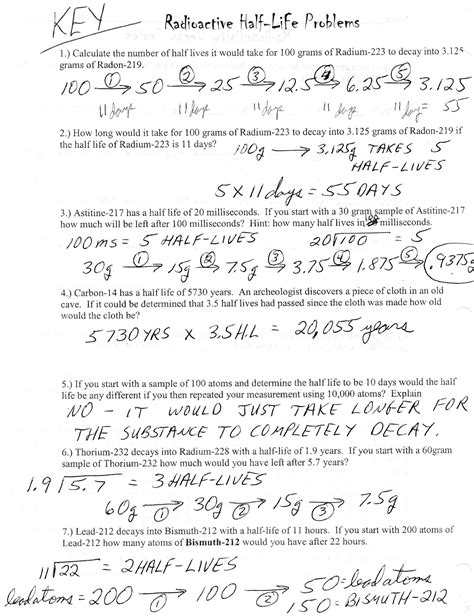 KEY Radioactive Half-Life Problems
1.) Calculate the number of half lives it would take for 100 grams of Radium-223 to decay into 3.125
grams of Radon-219.
100 ①→ 50 ②→ 25 ③→ 12.5 ④→ 6.25 ⑤→ 3.125
11 days 11 days 11 days 11 days 11 days = 55
2.) How long would it take for 100 grams of Radium-223 to decay into 3.125 grams of Radon-219 if
the half life of Radium-223 is 11 days? 100g → 3.125g TAKES 5
HALF-LIVES
5 X 11 days = 55 DAYS
3.) Astitine-217 has a half life of 20 milliseconds. If you start with a 30 gram sample of Astitine-217
how much will be left after 100 milliseconds? Hint: how many half lives in 100 milliseconds.
100 ms = 5 HALF-LIVES 20√100 = 5
30g ①→ 15g ②→ 7.5g ③→ 3.75 ④→ 1.875 ⑤→ .9375g
4.) Carbon-14 has a half life of 5730 years. An archeologist discovers a piece of cloth in an old
cave. If it could be determined that 3.5 half lives had passed since the cloth was made how old
would the cloth be?
5730 YRS X 3.5 H.L = 20,055 years
5.) If you start with a sample of 100 atoms and determine the half life to be 10 days would the half
life be any different if you then repeated your measurement using 10,000 atoms? Explain
NO - IT WOULD JUST TAKE LONGER FOR
THE SUBSTANCE TO COMPLETELY DECAY.
6.) Thorium-232 decays into Radium-228 with a half-life of 1.9 years. If you start with a 60gram
sample of Thorium-232 how much would you have left after 5.7 years?
1.9√5.7 = 3 HALF-LIVES
60g ①→ 30g ②→ 15g ③→ 7.5g
7.) Lead-212 decays into Bismuth-212 with a half-life of 11 hours. If you start with 200 atoms of
Lead-212 how many atoms of Bismuth-212 would you have after 22 hours.
11√22 = 2 HALF-LIVES
lead atoms = 200 ①→ 100 ②→ 50 = lead atoms
150 = BISMUTH-212